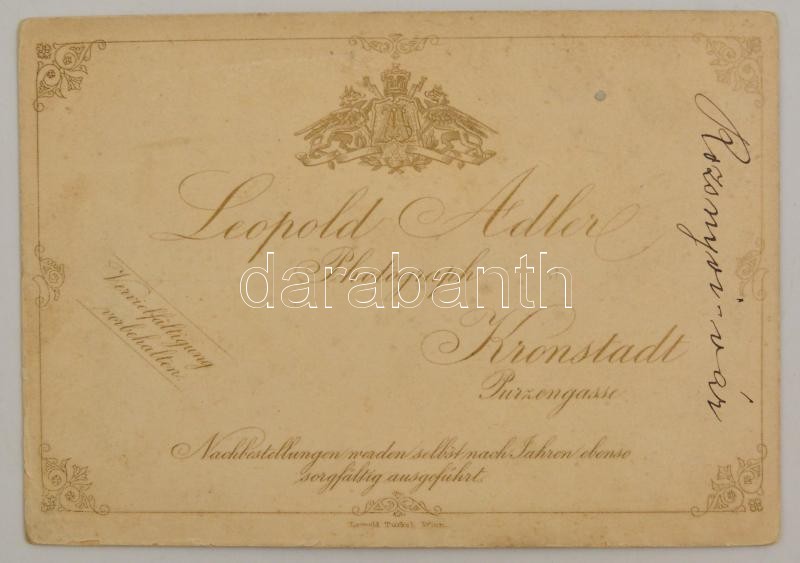 Leopold Adler
Photograph
Kronstadt
Purzengasse
Vervielfältigung
vorbehalten.
Nachbestellungen werden selbst nach Jahren ebenso
sorgfältig ausgeführt.
Leopold Türkel, Wien.
Rozsnyói-vár
darabanth